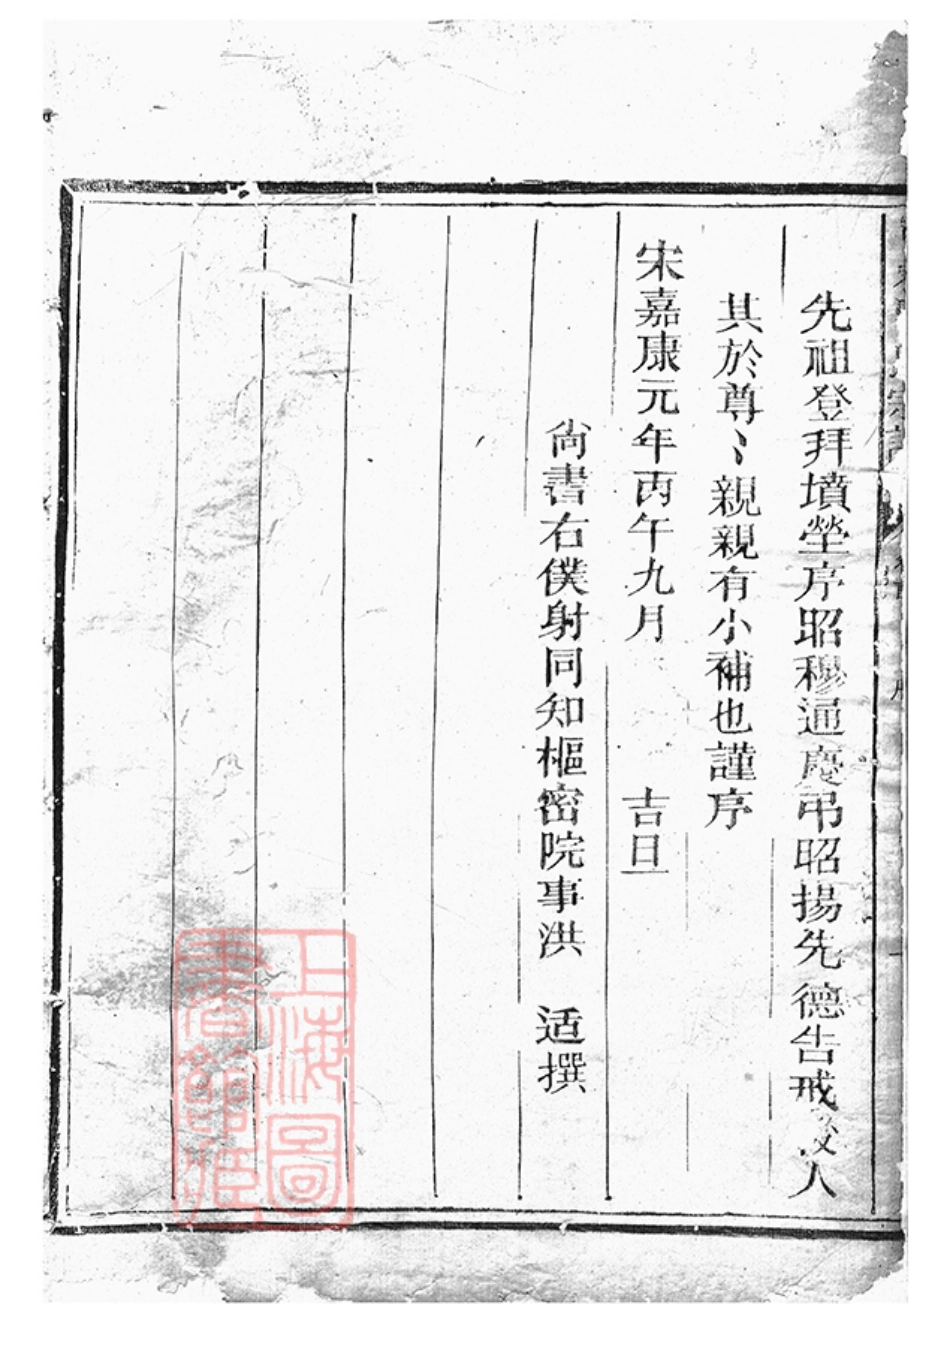 先祖登拜墳塋序昭穆通慶弔昭揚先德告戒 人
其於尊〻親親有小補也謹序
宋嘉康元年丙午九月 吉旦
尚書右僕射同知樞密院事洪 适撰
上海圖書館藏